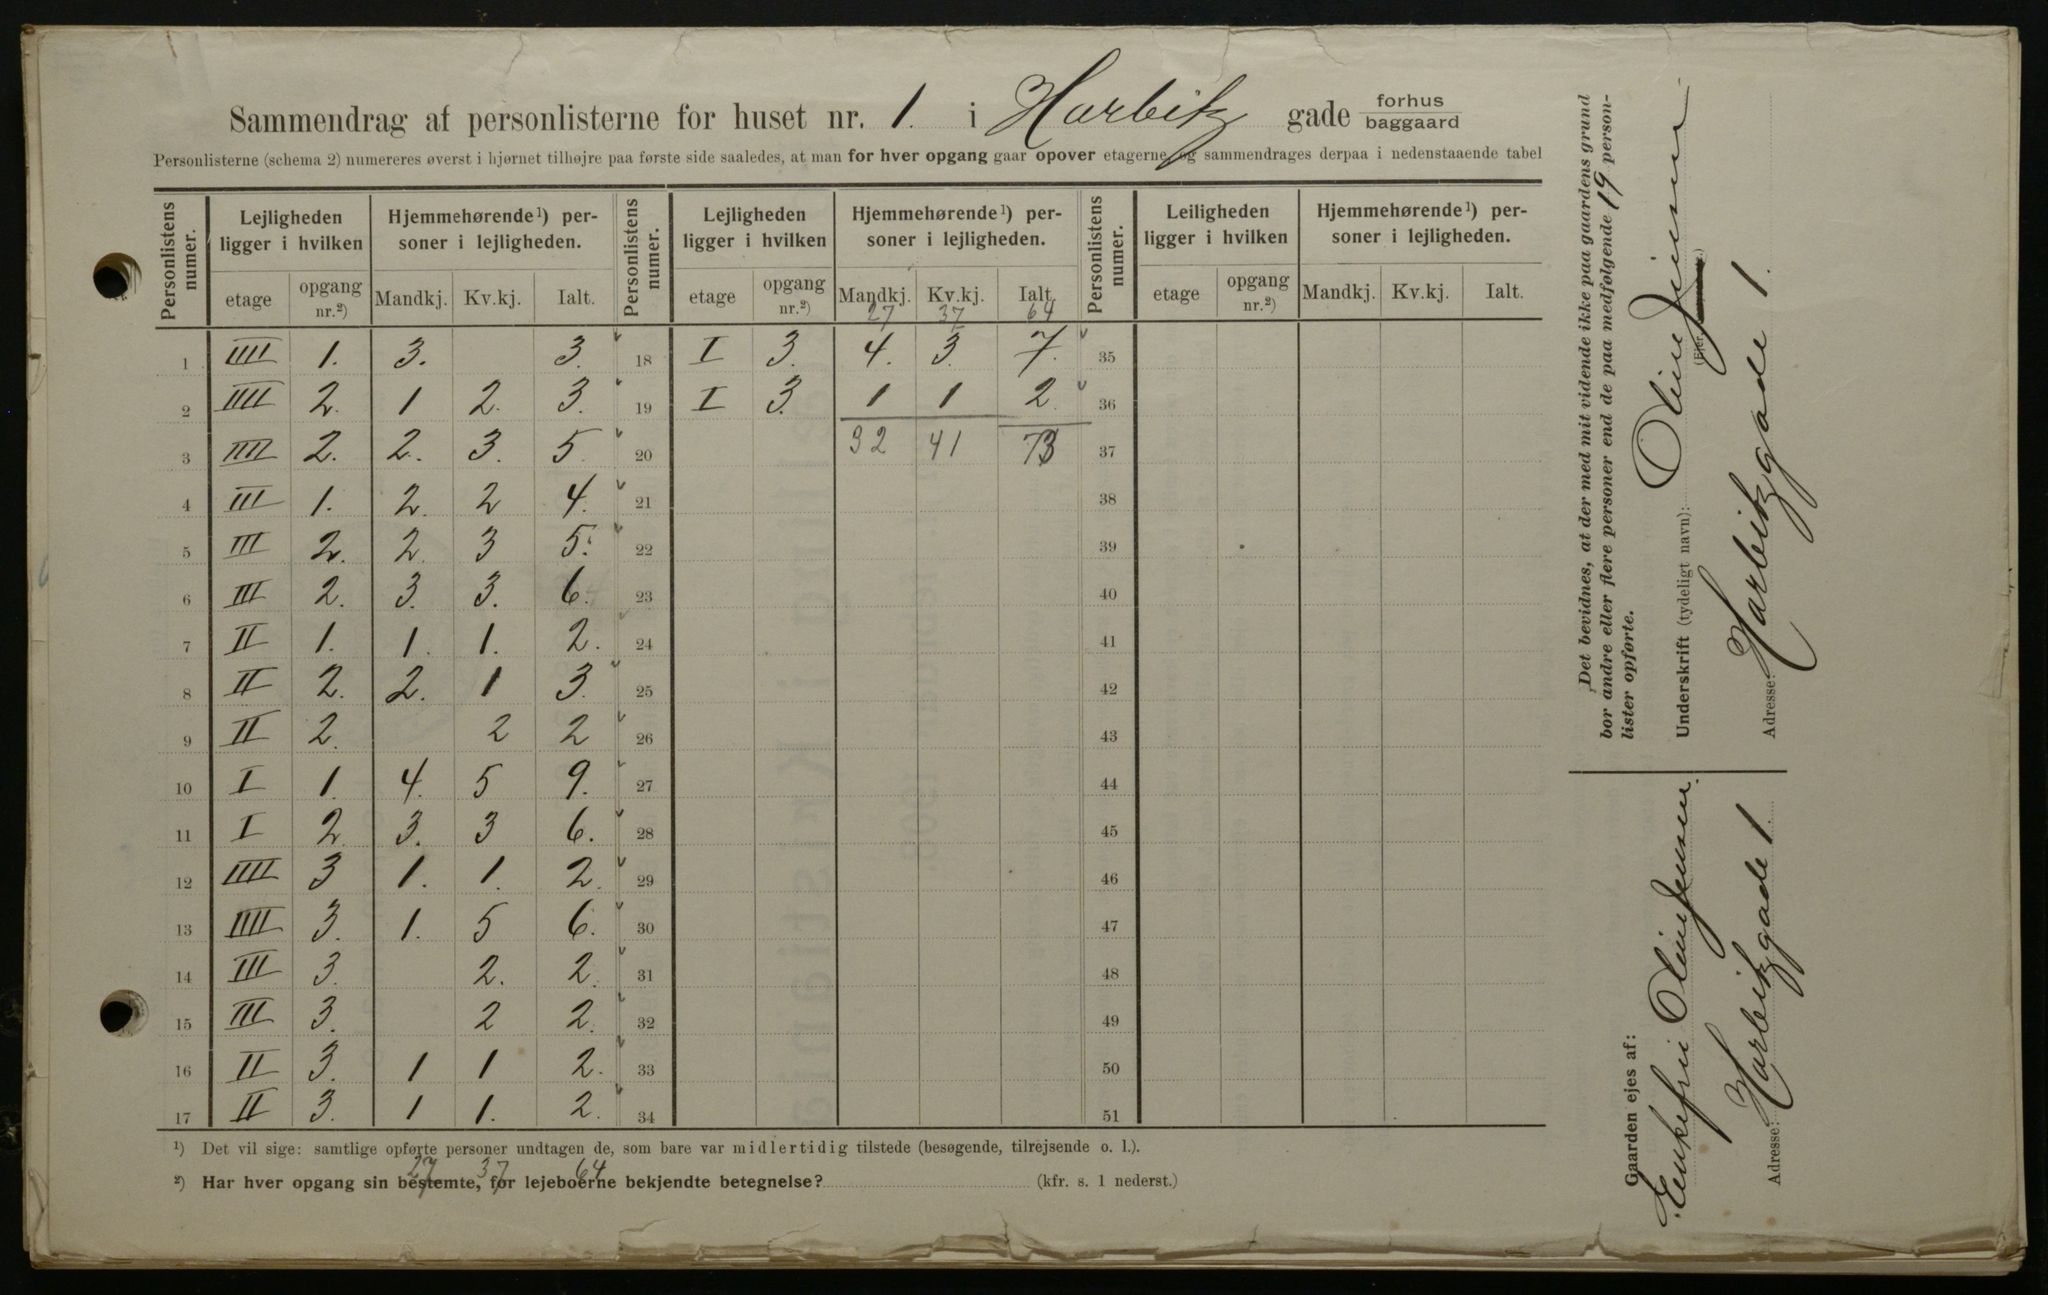 Sammendrag af personlisterne for huset nr. 1. i Harbitz gade forhus
baggaard
Personlisterne (schema 2) numereres øverst i hjørnet tilhøjre paa første side saaledes, at man for hver opgang gaar opover etagerne og sammendrages derpaa i nedenstaaende tabel
Personlistens numer. Lejligheden ligger i hvilken Hjemmehørende¹) personer i lejligheden. Personlistens numer. Lejligheden ligger i hvilken Hjemmehørende¹) personer i lejligheden. Personlistens numer. Leiligheden ligger i hvilken Hjemmehørende¹) personer i lejligheden.
etage opgang nr.²) Mandkj. Kv.kj. Ialt. etage opgang nr.²) Mandkj. Kv.kj. Ialt. etage opgang nr.²) Mandkj. Kv.kj. Ialt.
27 37 64
1 IIII 1. 3. 3. 18 I 3. 4. 3. 7. 35
2 IIII 2. 1 2. 3. 19 I 3. 1 1 2. 36
3 IIII 2. 2. 3. 5. 20 32 41 73 37
4 III 1. 2. 2 4. 21 38
5 III 2. 2. 3 5. 22 39
6 III 2. 3. 3. 6. 23 40
7 II 1. 1. 1. 2. 24 41
8 II 2. 2. 1 3. 25 42
9 II 2. 2 2 26 43
10 I 1. 4. 5 9. 27 44
11 I 2. 3. 3 6. 28 45
12 IIII 3 1. 1. 2. 29 46
13 IIII 3. 1. 5 6. 30 47
14 III 3. 2. 2. 31 48
15 III 3. 2 2. 32 49
16 II 3. 1 1 2. 33 50
17 II 3. 1 1. 2. 34 51
¹) Det vil sige: samtlige opførte personer undtagen de, som bare var midlertidig tilstede (besøgende, tilrejsende o. l.).
27 37 64
²) Har hver opgang sin bestemte, for lejeboerne bekjendte betegnelse? (kfr. s. 1 nederst.)
Det bevidnes, at der med mit vidende ikke paa gaardens grund
bor andre eller flere personer end de paa medfølgende 19 personlister opførte.
Underskrift (tydeligt navn): Oline Jensen
(Ejer
Adresse: Harbitzgade 1.
Gaarden ejes af:
Enkefru Oline Jensen.
Adresse: Harbitzgade 1